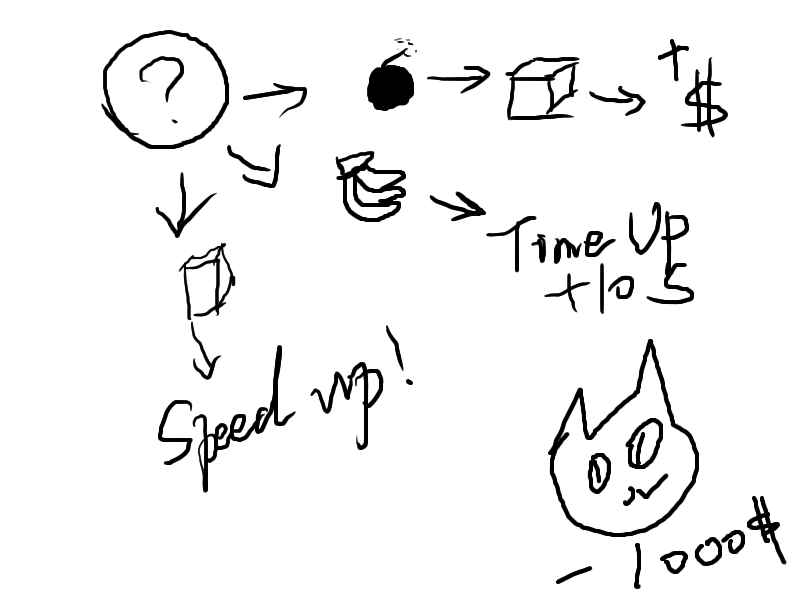 ?
+$
Time Up
+10 S
Speed up!
-1000$